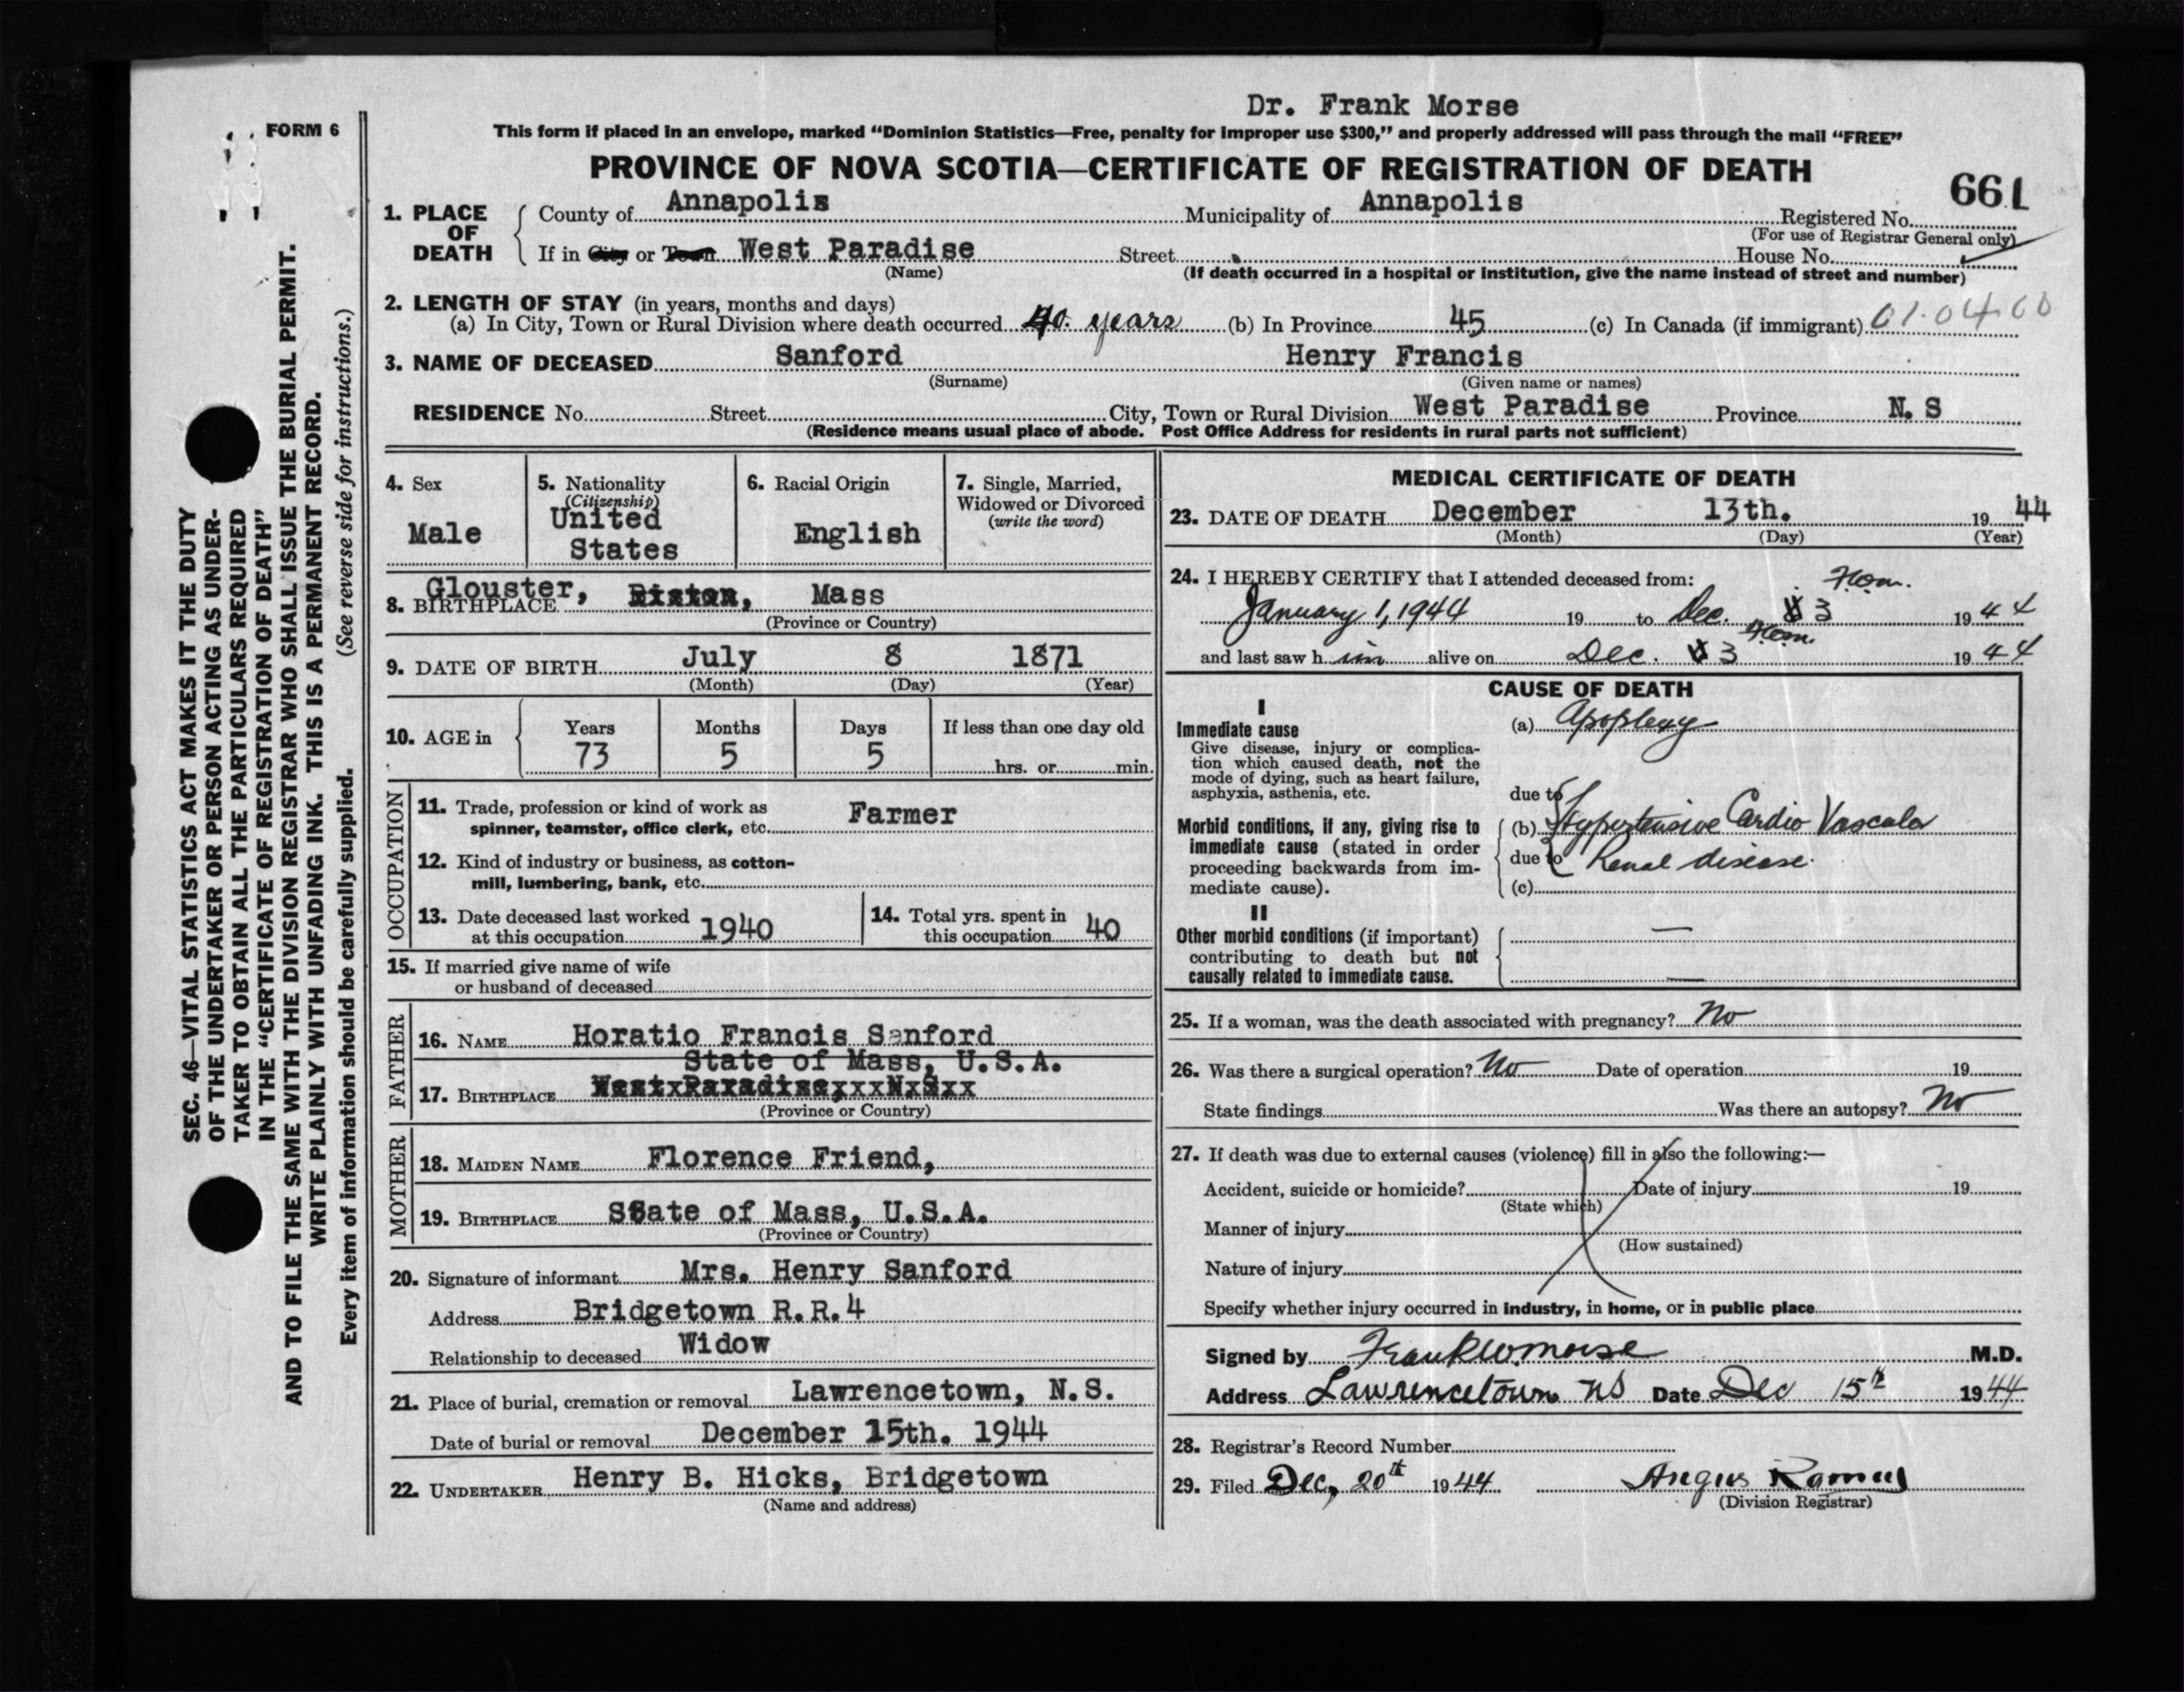 Dr. Frank Morse
FORM 6
This form if placed in an envelope, marked "Dominion Statistics—Free, penalty for improper use $300," and properly addressed will pass through the mail "FREE"
PROVINCE OF NOVA SCOTIA—CERTIFICATE OF REGISTRATION OF DEATH
661
1. PLACE OF DEATH County of Annapolis Municipality of Annapolis Registered No.
(For use of Registrar General only)
If in City or Town West Paradise Street House No.
(Name) (If death occurred in a hospital or institution, give the name instead of street and number)
2. LENGTH OF STAY (in years, months and days)
(a) In City, Town or Rural Division where death occurred 40. years (b) In Province 45 (c) In Canada (if immigrant)
3. NAME OF DECEASED Sanford Henry Francis
(Surname) (Given name or names)
RESIDENCE No. Street City, Town or Rural Division West Paradise Province N. S
(Residence means usual place of abode. Post Office Address for residents in rural parts not sufficient)
4. Sex
Male
5. Nationality
(Citizenship)
United
States
6. Racial Origin
English
7. Single, Married,
Widowed or Divorced
(write the word)
8. BIRTHPLACE Glouster, Mass
(Province or Country)
9. DATE OF BIRTH July 8 1871
(Month) (Day) (Year)
10. AGE in Years Months Days If less than one day old
73 5 5 hrs. or min.
OCCUPATION
11. Trade, profession or kind of work as
spinner, teamster, office clerk, etc. Farmer
12. Kind of industry or business, as cotton-
mill, lumbering, bank, etc.
13. Date deceased last worked
at this occupation 1940
14. Total yrs. spent in
this occupation 40
15. If married give name of wife
or husband of deceased
FATHER
16. NAME Horatio Francis Sanford
State of Mass, U.S.A.
17. BIRTHPLACE West Paradise, N S
(Province or Country)
MOTHER
18. MAIDEN NAME Florence Friend,
19. BIRTHPLACE State of Mass, U.S.A.
(Province or Country)
20. Signature of informant Mrs. Henry Sanford
Address Bridgetown R.R.4
Relationship to deceased Widow
21. Place of burial, cremation or removal Lawrencetown, N.S.
Date of burial or removal December 15th. 1944
22. UNDERTAKER Henry B. Hicks, Bridgetown
(Name and address)
MEDICAL CERTIFICATE OF DEATH
23. DATE OF DEATH December 13th. 19 44
(Month) (Day) (Year)
24. I HEREBY CERTIFY that I attended deceased from:
January 1, 1944 19 to Dec. 3 1944
and last saw him alive on Dec. 3 1944
CAUSE OF DEATH
I
Immediate cause (a) Apoplexy
Give disease, injury or complica-
tion which caused death, not the
mode of dying, such as heart failure,
asphyxia, asthenia, etc.
due to
Morbid conditions, if any, giving rise to
immediate cause (stated in order
proceeding backwards from im-
mediate cause).
(b) Hypertensive Cardio Vascular
due to Renal disease.
(c)
II
Other morbid conditions (if important)
contributing to death but not
causally related to immediate cause.
25. If a woman, was the death associated with pregnancy? No
26. Was there a surgical operation? No Date of operation 19
State findings Was there an autopsy? No
27. If death was due to external causes (violence) fill in also the following:—
Accident, suicide or homicide? Date of injury 19
(State which)
Manner of injury
(How sustained)
Nature of injury
Specify whether injury occurred in industry, in home, or in public place
Signed by Frank W. Morse M.D.
Address Lawrencetown NS Date Dec 15th 1944
28. Registrar's Record Number
29. Filed Dec, 20th 1944 Angus
(Division Registrar)
SEC. 46—VITAL STATISTICS ACT MAKES IT THE DUTY
OF THE UNDERTAKER OR PERSON ACTING AS UNDER-
TAKER TO OBTAIN ALL THE PARTICULARS REQUIRED
IN THE "CERTIFICATE OF REGISTRATION OF DEATH"
AND TO FILE THE SAME WITH THE DIVISION REGISTRAR WHO SHALL ISSUE THE BURIAL PERMIT.
WRITE PLAINLY WITH UNFADING INK. THIS IS A PERMANENT RECORD.
Every item of information should be carefully supplied. (See reverse side for instructions.)